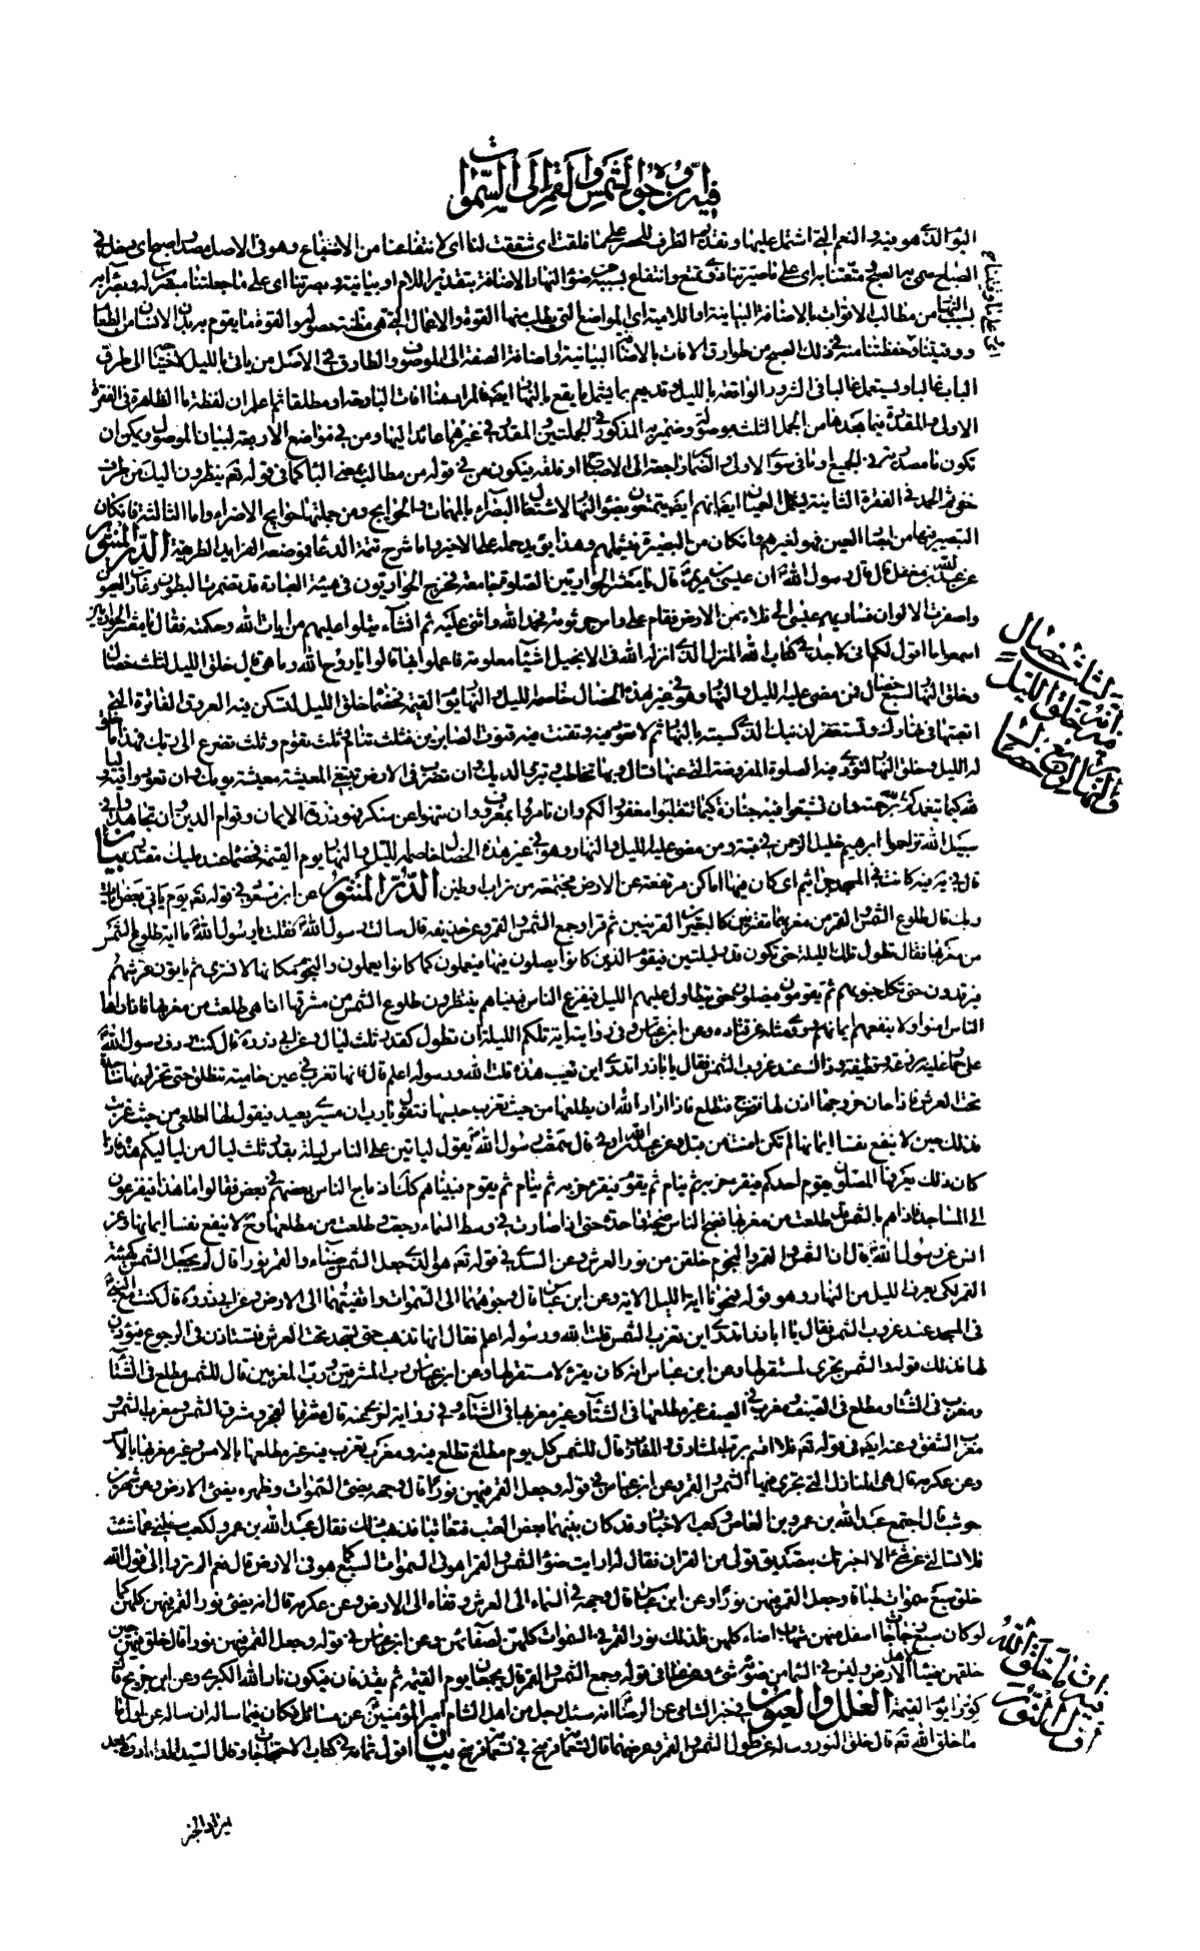 فيه ان وجوه الشمس والقمر الى السموات
اليوم الذى هو فيه والنعم التى اشتمل عليها وتقديم الظرف للحصر على ما فلقت اى شققت لنا اى لانتفاعنا من الاصباح وهو فى الاصل مصدر اصبح اى دخل فى
الصباح سمى به الصبح ومتعتنا به اى على ما صيرتنا ذوى تمتع وانتفاع بسببه من ضوء النهار والاضافة بتقدير اللام او بيانية وبصرتنا اى على ما جعلتنا مبصرين له
من مطالب الاقوات بالاضافة البيانية او اللامية اى المواضع التى يطلب منها القوة والاعمال التى هى مظنة حصوله والقوة ما يقوم به بدن الانسان من الطعام
ووقيتنا وحفظتنا منه فى ذلك الصبح من طوارق الافات بالاضافة البيانية واضافة الصفة الى الموصوف والطارق فى الاصل من ياتى بالليل لاحتياجه الى طرق
الباب غالبا ويستعمل غالبا فى الشرور الواقعة بالليل وقد يعم بما يشمل ما يقع بالنهار ايضا فالمراد هنا افات البارحة او مطلقا ثم اعلم ان لفظة ما الظاهرة فى الفقرة
الاولى والمقدرة فيما بعدها من الجمل الثلث موصولة وضمير به المذكور فى الجملتين والمقدر فى غيرهما عائد اليها ومن فى مواضع الاربعة لبيان الموصول ويمكن ان
تكون ما مصدرية فى الجميع او فى ما سوى الاولى والضمائر راجعة الى الاصباح او فلقه فيكون من فى قوله من مطالب بمعنى الباء كما فى قوله تعالى ينظرون اليك من طرف
خفى ثم الحمد فى الفقرة الثانية يشمل العميان ايضا فانهم ايضا يتمتعون بضوء النهار لاشتغال البصراء بالمهمات والحوايج ومن جملتها حوايج الاضراء واما الثالثة فان كان
التبصير فيها من ابصار العين فهو لغيرهم وان كان من البصيرة فيشملهم وهذا يؤيد حمله على الاخير واما شرح تتمة الدعاء فموضعه الفرايد الطريفة الدر المنثور
عن عبد الله بن مغفل قال قال رسول الله ان عيسى بن مريم قال يا معشر الحواريين الصلوة جامعة فخرج الحواريون فى هيئة العبادة قد تضمرت البطون وغارت العيون
واصفرت الالوان فسار بهم عيسى الى فلاة من الارض فقام على راس جرثومة فحمد الله واثنى عليه ثم انشاء يتلو عليهم من ايات الله وحكمته فقال يا معشر الحواريين
اسمعوا ما اقول لكم انى لاجد فى كتاب الله المنزل الذى انزله الله فى الانجيل اشياء معلومة فاعملوا بها قالوا يا روح الله وما هى قال خلق الليل لثلث خصال
وخلق النهار لسبع خصال فمن مضى عليه الليل والنهار وهو فى غير هذه الخصال خاصمه الليل والنهار يوم القيمة فخصماه خلق الليل لتسكن فيه العروق الفاترة التى
اتعبتها فى نهارك وتستغفر لذنبك الذى كسبته بالنهار ثم لا تعود فيه وتقنت فيه قنوت الصابرين فثلث تنام وثلث تقوم وثلث تضرع الى ربك فهذا ما خلق
له الليل وخلق النهار لتؤدى فيه الصلوة المفروضة التى عنها تسال وبها تخاطب وتبر والديك وان تضرب فى الارض تبتغى المعيشة معيشة يومك وان تعودوا فيه وليا
لله كيما يتغمدكم الله برحمته وان تشيعوا فيه جنازة كيما تنقلبوا مغفورا لكم وان تامروا بمعروف وان تنهوا عن منكر فهو ذروة الايمان وقوام الدين وان تجاهدوا فى
سبيل الله تزاحموا ابرهيم خليل الرحمن فى قبته ومن مضى عليه الليل والنهار وهو فى غير هذه الخصال خاصمه الليل والنهار يوم القيمة فخصماه عند مليك مقتدر بيان
قال الجزرى فيه كانت فى المسجد جراثيم اى كان فيها اماكن مرتفعة عن الارض مجتمعة من تراب وطين الدر المنثور عن ابن مسعود فى قوله تعالى يوم ياتى بعض ايات
ربك قال طلوع الشمس والقمر من مغربهما مقترنين كالبعيرين القرينين ثم قرا وجمع الشمس والقمر وعن حذيفة قال سالت رسول الله فقلت يا رسول الله ما اية طلوع الشمس
من مغربها فقال تطول تلك الليلة حتى تكون قدر ليلتين فيقوم الذين كانوا يصلون فيها فيعملون كما كانوا يعملون والنجوم مكانها لا تسرى ثم ياتون فرشهم
فيرقدون حتى تكل جنوبهم ثم يقومون فيصلون حتى يتطاول عليهم الليل فيفزع الناس فبينا هم ينتظرون طلوع الشمس من مشرقها اذا هى طلعت من مغربها فاذا راها
الناس امنوا ولا ينفعهم ايمانهم وعن ابن عباس فى رواية اية تلكم الليلة ان تطول كقدر ثلث ليال وعن ابى ذر قال كنت ردف رسول الله
على حمار عليه بردعة وقطيفة وذاك عند غروب الشمس فقال يا با ذر اتدرى اين تغيب هذه قلت الله ورسوله اعلم قال فانها تغرب فى عين حامية تنطلق حتى تخر لربها ساجدة
تحت العرش فاذا حان خروجها اذن لها فتخرج فتطلع فاذا اراد الله ان يطلعها من حيث تغرب حبسها فتقول يا رب ان مسيرى بعيد فيقول لها اطلعى من حيث غربت
فذلك حين لا ينفع نفسا ايمانها لم تكن امنت من قبل وعن عبد الله بن ابى اوفى قال سمعت رسول الله يقول لياتين على الناس ليلة بقدر ثلث ليال من لياليكم هذه فاذا
كان ذلك يعرفها المصلون يقوم احدكم فيقرء حزبه ثم ينام ثم يقوم فيقرء حزبه ثم ينام ثم يقوم فبينا هم كذلك اذ ماج الناس بعضهم فى بعض فقالوا ما هذا فيفزعون
الى المساجد فاذا هم بالشمس قد طلعت من مغربها فضج الناس ضجة واحدة حتى اذا صارت فى وسط السماء رجعت وطلعت من مطلعها وح لا ينفع نفسا ايمانها وعن
انس عن رسول الله قال ان الشمس والقمر والنجوم خلقن من نور العرش وعن السدى فى قوله تعالى هو الذى جعل الشمس ضياء والقمر نورا قال لم يجعل الشمس كهيئة
القمر كى يعرف الليل من النهار وهو قوله فمحونا اية الليل الاية وعن ابن عباس قال وجوههما الى السموات واقفيتهما الى الارض وعن ابى ذر قال كنت مع النبى
فى المسجد عند غروب الشمس فقال يا ابا ذر اتدرى اين تغرب الشمس قلت الله ورسوله اعلم فقال انها تذهب حتى تسجد تحت العرش فتستاذن فى الرجوع فيؤذن
لها فذلك قوله والشمس تجرى لمستقر لها وعن ابن عباس انه كان يقرء لا مستقر لها وعن ابن عباس رب المشرقين ورب المغربين قال للشمس مطلع فى الشتاء
ومغرب فى الشتاء ومطلع فى الصيف ومغرب فى الصيف غير مطلعها فى الشتاء وغير مغربها فى الشتاء وفى رواية قال مشرق الفجر ومشرق الشمس ومغرب الشمس
مغرب الشفق وعنه ايضا فى قوله تعالى فلا اقسم برب المشارق والمغارب قال للشمس كل يوم مطلع تطلع فيه ومغرب تغرب فيه غير مطلعها بالامس وغير مغربها بالامس
وعن عكرمة قال هى المنازل التى تجرى فيها الشمس والقمر وعن ابن عباس فى قوله وجعل القمر فيهن نورا قال وجهه يضئ السموات وظهره يضئ الارض وعن شهر بن
حوشب قال اجتمع عبد الله بن عمرو بن العاص وكعب الاحبار وقد كان بينهما بعض العتب فتعاتبا فذهب ذلك فقال عبد الله بن عمرو لكعب سلنى عما شئت
فلا تسالنى عن شئ الا اخبرتك بتصديق قولى من القران فقال له ارايت ضوء الشمس والقمر اهو فى السموات السبع كما هو فى الارض قال نعم الم تروا الى قول الله
خلق سبع سموات طباقا وجعل القمر فيهن نورا وعن ابن عباس قال وجهه فى السماء الى العرش وقفاه الى الارض وعن عكرمة قال انه يضئ نور القمر فيهن كلهن كما
لو كان سبع زجاجات اسفل منهن شهاب اضاء كلهن فكذلك نور القمر فى السموات كلهن لصفائهن وعن ابن عباس فى قوله وجعل القمر فيهن نورا قال خلق فيهن حين
خلقهن ضياء لاهل الارض وليس فى السماء من ضوئه شئ وعن عطا فى قوله وجمع الشمس والقمر قال يجمعان يوم القيمة ثم يقذفان فيكون نار الله الكبرى وعن ابن جريج قال
كورا يوم القيمة العلل والعيون فى خبر الشامى عن الرضا انه سئل رجل من اهل الشام امير المؤمنين عن مسائل فكان فيما ساله ان ساله عن اول ما
خلق الله تعالى قال خلق النور وساله عن طول الشمس والقمر وعرضهما قال تسعمائة فرسخ فى تسعمائة فرسخ بيان اقول تمامه فى كتاب الاحتجاجات وقال السيد الداماد
لثلث خصال
انه خلق الليل
فيه
والنهار لسبع خصال
ان ما خلق الله
فيه
اولا النور